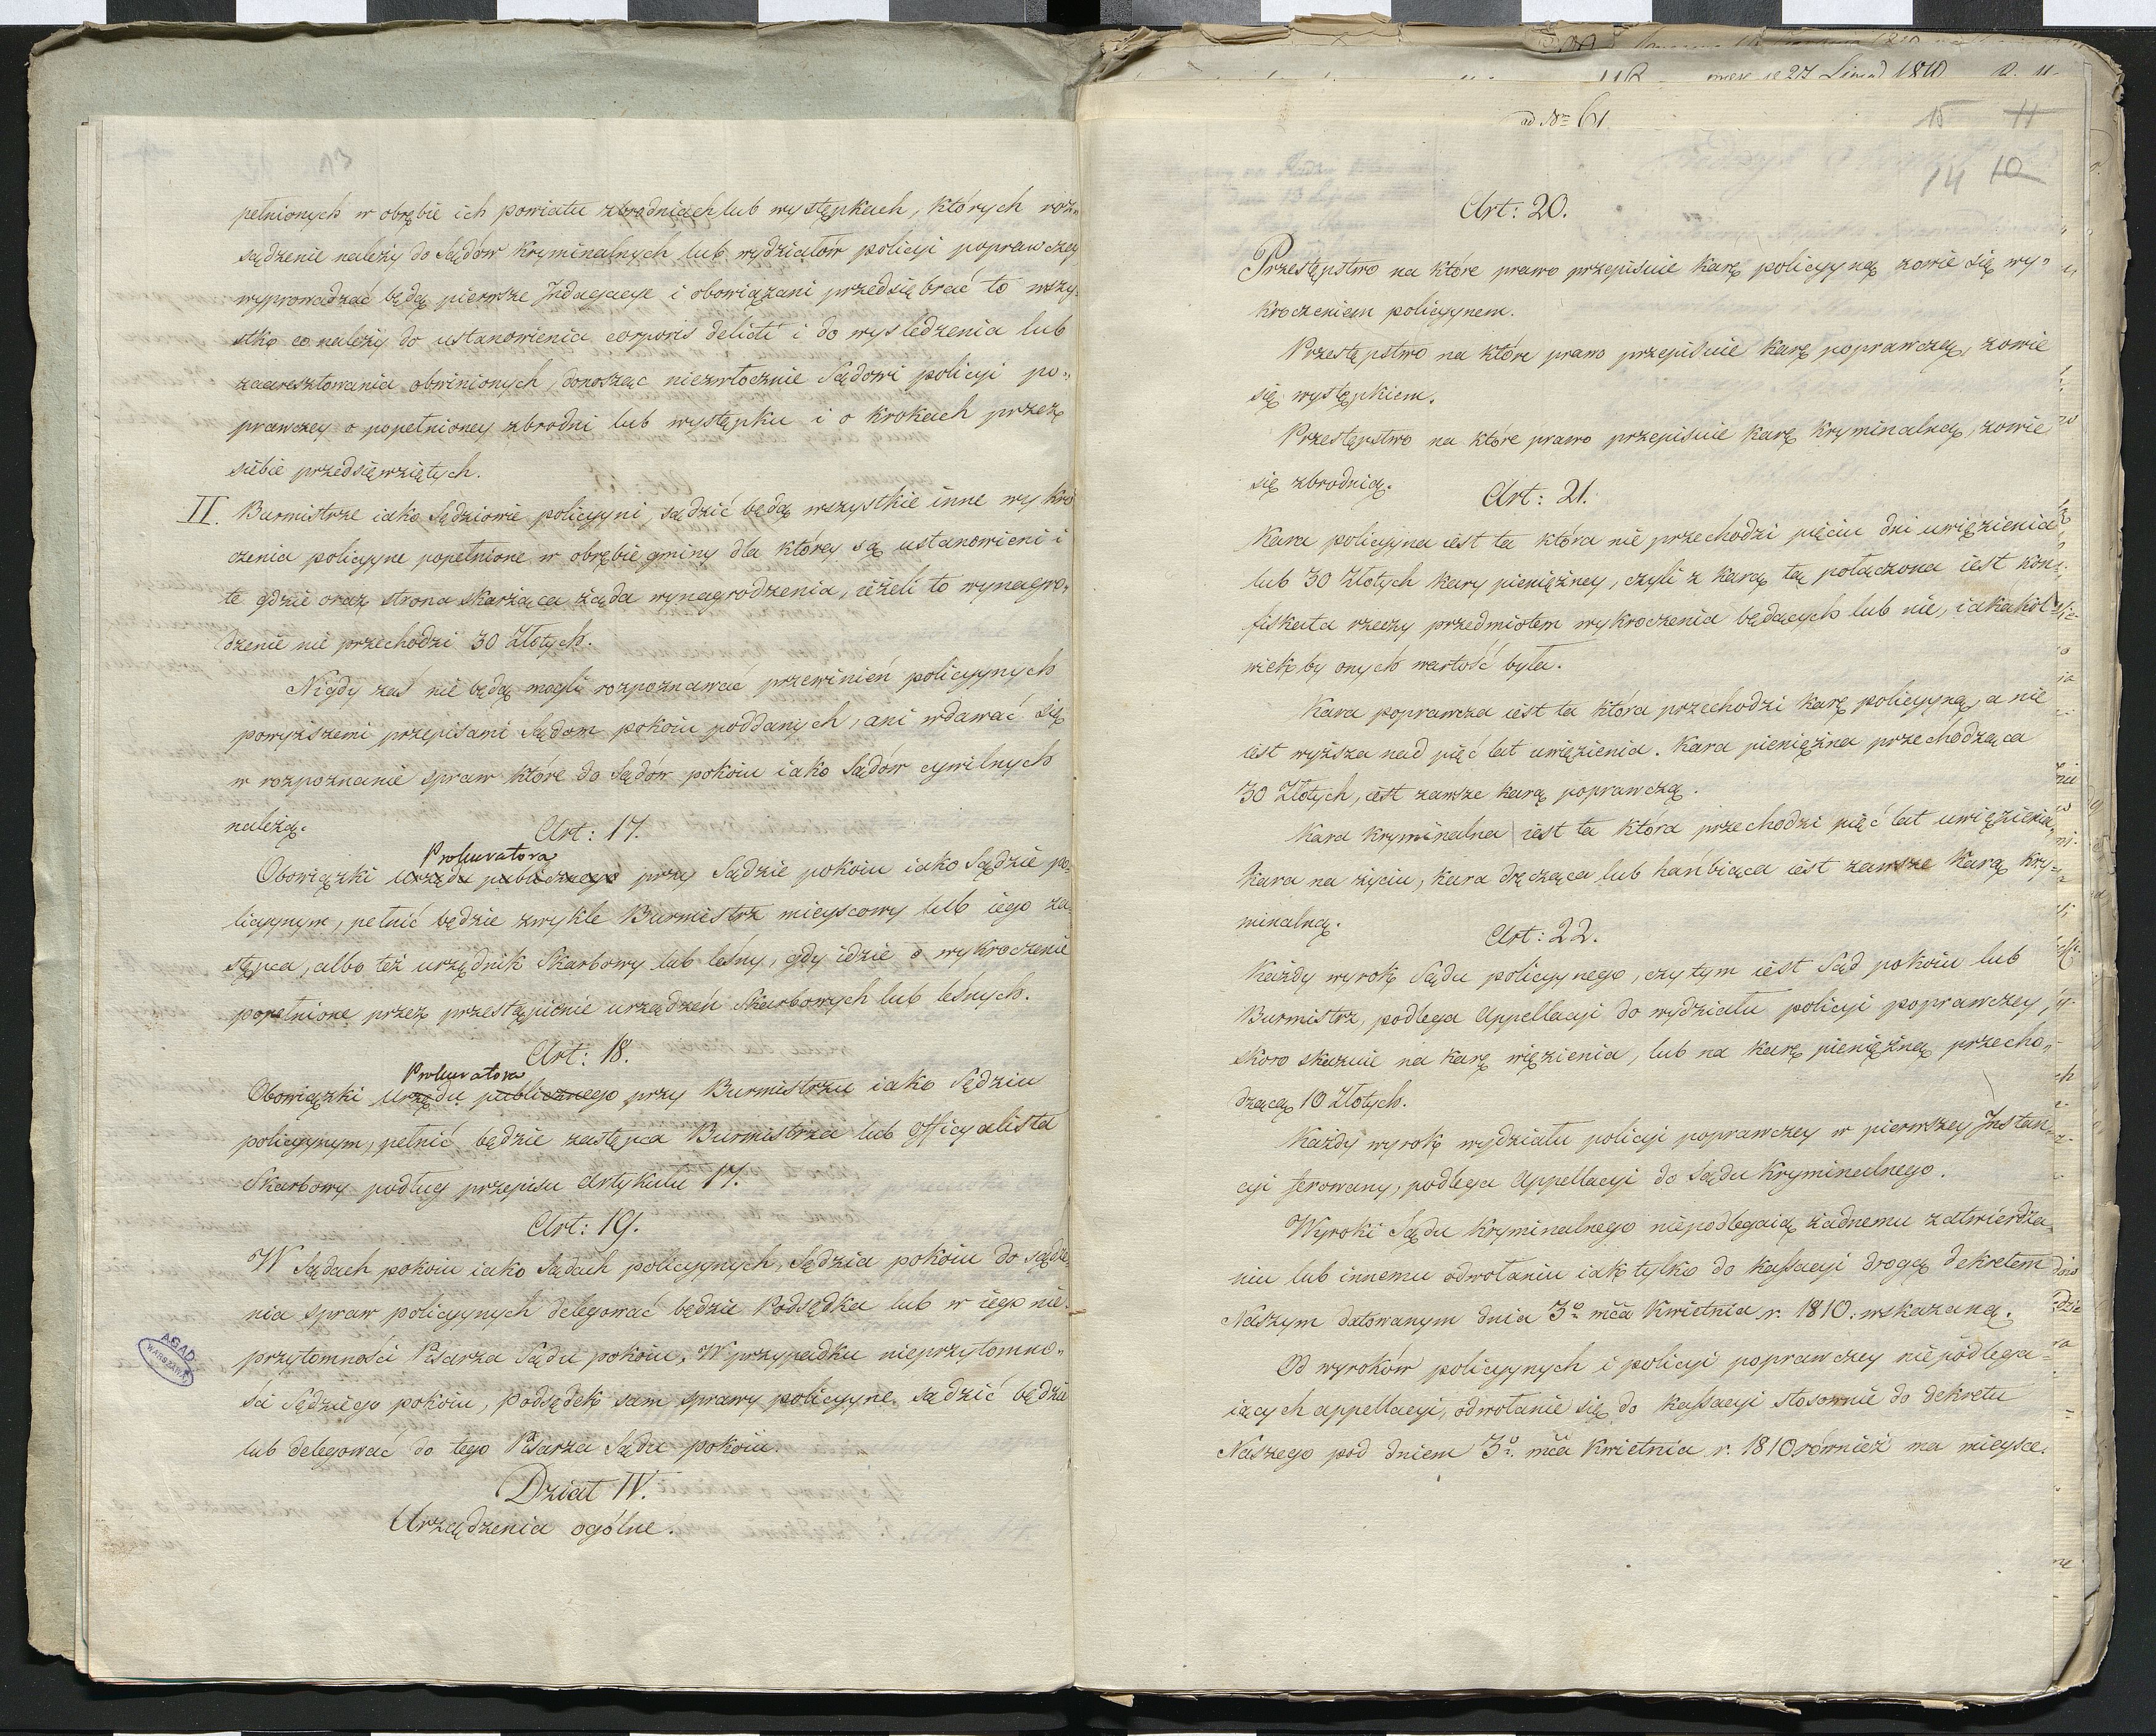 13
pełnionych w obrębie ich powiatu zbrodniach lub występkach, których roz„
sądzenie należy do Sądów Kryminalnych lub wydziałów policyi poprawczey
wyprowadzać będą pierwsze Indagacye i obowiązani przedsiębrać to wszy„
stko co należy do ustanowienia corporis delicti i do wysledzenia lub
zaaresztowania obwinionych, donosząc niezwłocznie Sądowi policyi po„
prawczey o popełnioney zbrodni lub występku i o krokach przez
siebie przedsięwziętych.
II. Burmistrze iako Sędziowie policyyni, sądzić będą wszystkie inne wykro
czenia policyyne popełnione w obrębie gminy dla którey są ustanowieni i
te gdzie oraz strona skarżąca żąda wynagrodzenia, ieżeli to wynagro„
dzenie nie przechodzi 30 Złotych.
Nigdy zaś nie będą mogli rozpoznawać przewinień policyynych
powyższemi przepisami Sądom pokoiu poddanych, ani wdawać się
w rozpoznanie spraw które do Sądów pokoiu iako Sądów cywilnych
należą.
Art: 17.
Prokuratora
Obowiązki urzędu publicznego przy Sądzie pokoiu iako Sądzie po„
licyynym, pełnić będzie zwykle Burmistrz mieyscowy lub iego za„
stępca, albo też urzędnik Skarbowy lub leśny, gdy idzie o wykroczenie
popełnione przez przestąpienie urządzeń Skarbowych lub leśnych.
Art: 18.
Prokuratora
Obowiązki urzędu publicznego przy Burmistrzu iako Sędziu
policyynym, pełnić będzie zastępca Burmistrza lub officyalista
Skarbowy podług przepisu Artykułu 17.
Art: 19.
W Sądach pokoiu iako Sądach policyynych, Sędzia pokoiu do sądze„
nia spraw policyynych delegować będzie Podsędka lub w iego nie„
przytomności Pisarza Sądu pokoiu. W przypadku nieprzytomno„
ści Sędziego pokoiu, podsędek sam sprawy policyyne sądzić będzie
lub delegować do tego Pisarza Sądu pokoiu.
Dział IV.
Urządzenia ogólne.
AGAD
WARSZAWA
27 1810
ad Nro 61.
15 11
14 10
Art: 20.
Przestępstwo na które prawo przepisuie karę policyyną zowie się wy„
kroczeniem policyynem.
Przestępstwo na które prawo przepisuie karę poprawczą, zowie
się występkiem.
Przestępstwo na które prawo przepisuie karę kryminalną, zowie
się zbrodnią.
Art: 21.
Kara policyyna iest ta która nie przechodzi pięciu dni uwięzienia
lub 30 Złotych kary pieniężney, czyli z karą tą połączona iest kon„
fiskata rzeczy przedmiotem wykroczenia będących lub nie, iakakol„
wiek by onych wartość była.
Kara poprawcza iest ta która przechodzi karę policyyną, a nie
iest wyższa nad pięć lat uwięzienia. Kara pieniężna przechodząca
30 Złotych, iest zawsze karą poprawczą.
Kara kryminalna iest ta która przechodzi pięć lat uwięzienia,
Kara na życiu, kara dręcząca lub hańbiąca iest zawsze karą kry„
minalną.
Art: 22.
Każdy wyrok Sądu policyynego, czy tym iest Sąd pokoiu lub
Burmistrz, podlega Appellacyi do wydziału policyi poprawczey,
skoro skazuie na karę więzienia, lub na karę pieniężną przecho„
dzącą 10 Złotych.
Każdy wyrok wydziału policyi poprawczey w pierwszey Instan„
cyi ferowany, podlega Appellacyi do Sądu Kryminalnego.
Wyroki Sądu Kryminalnego niepodlegaią żadnemu zatwierdze„
niu lub innemu odwołaniu iak tylko do kassacyi drogą dekretem
Naszym datowanym dnia 3o mca Kwietnia r. 1810. wskazaną.
Od wyroków policyynych i policyi poprawczey niepodlega„
iących appellacyi, odwołanie się do kassacyi stosownie do dekretu
Naszego pod dniem 3o mca Kwietnia r. 1810 również ma mieysce.